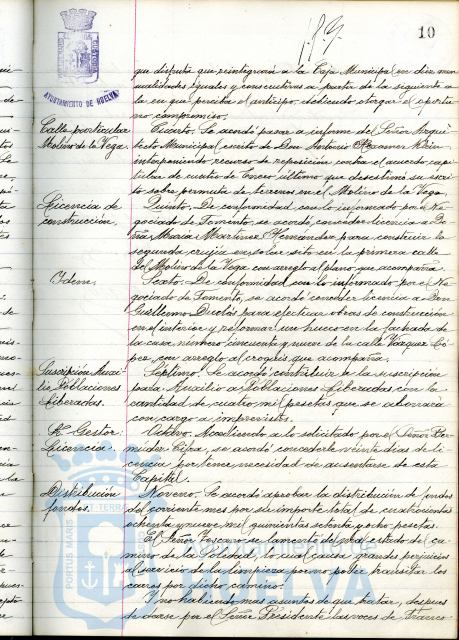 10
AYUNTAMIENTO DE HUELVA
que disfruta que reintegrará a la Caja Municipal en diez men
sualidades iguales y consecutivas a partir de la siguiente a
la en que perciba el anticipo, debiendo otorgar el oportu
no compromiso.
Calle particular
Molino de la Vega.
Cuarto. Se acordó pasar a informe del Señor Arqui
tecto Municipal escrito de Don Antonio
interponiendo recurso de reposición contra el acuerdo capi
tular de cuatro de Enero último que desestimó su escri
to sobre permuta de terrenos en el Molino de la Vega.
Licencia de
construcción.
Quinto. De conformidad con lo informado por el Ne
gociado de Fomento, se acordó conceder licencia a Do
ña María Martínez Hernández para construir la
segunda crujía en solar sito en la primera calle
del Molino de la Vega con arreglo al plano que acompaña.
Idem.
Sexto. De conformidad con lo informado por el Ne
gociado de Fomento, se acordó conceder licencia a Don
Guillermo Duclós para efectuar obras de construcción
en el interior y reformar un hueco en la fachada de
la casa número cincuenta y nueve de la calle Vázquez Ló
pez, con arreglo al croquis que acompaña.
Suscripción Auxi
lio Poblaciones
Liberadas.
Séptimo. Se acordó contribuir a la suscripción
para Auxilio a Poblaciones Liberadas con la
cantidad de cuatro mil pesetas que se abonará
con cargo a imprevistos.
Sr. Gestor:
Licencia.
Octavo. Accediendo a lo solicitado por el Señor Ber
múdez Cifra, se acordó concederle veinte días de li
cencia por tener necesidad de ausentarse de esta
Capital.
Distribución
fondos.
Noveno. Se acordó aprobar la distribución de fondos
del corriente mes por su importe total de cuatrocientas
ochenta y nueve mil quinientas setenta y ocho pesetas.
El Señor Toscano se lamenta del mal estado del ca
mino de la Soledad, lo cual causa grandes perjuicios
al servicio de la limpieza por no poder transitar los
carros por dicho camino.
Y no habiendo más asuntos de que tratar, después
de darse por el Señor Presidente las voces de Franco
PORTUS MARIS ET TERRAE
HUELVA